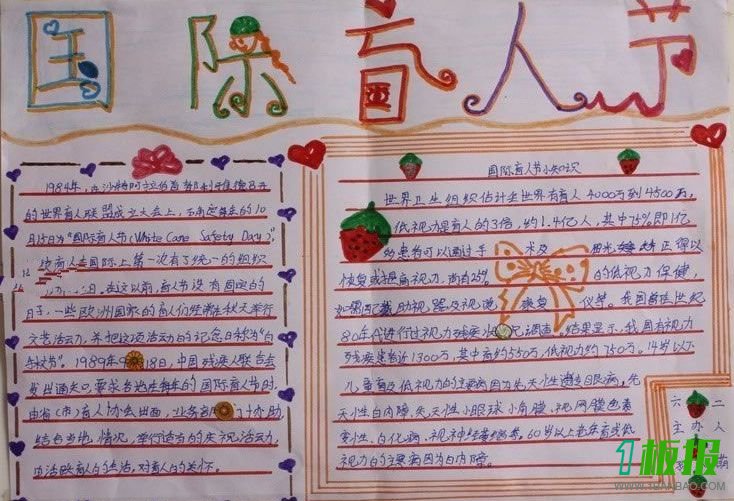 国际盲人节
1984年，在沙特阿拉伯首都利雅德召开
的世界盲人联盟成立大会上，确定每年的10
月15日为"国际盲人节(White Cane Safety Day)"，
盲人在国际上第一次有了统一的组织
在这以前，盲人节没有固定的
日子，一些欧洲国家的盲人们经常在秋天举行
文艺活动，并把这项活动的记念日称为"白
1989年9 18日，中国残疾人联合会
发出通知，要求各地在每年的国际盲人节时，
由省(市)盲人协会出面， 协助，
结合当地 情况，举行适当的庆祝活动，
盲人的生活，对盲人的关怀。
国际盲人节小知识
世界卫生组织估计全世界有盲人4000万到4500万，
低视力是盲人的3倍，约1.4亿人，其中75%即1亿
的患者可以通过手 术及 正得以
恢复或提高视力，尚有25% 的低视力保健，
如果配戴助视器及视觉 康复 我国
80年代进行过视力残疾 调查，结果显示，我国有视力
残疾患者近1300万，其中盲约550万，低视力约750万。14岁以下
儿童盲及低视力的主要病因为先天性遗传眼病，先
天性白内障、先天性小眼球小角膜、视网膜色素
变性、白化病、视神经萎缩等。60岁以上老年盲或低
视力的主要病因为白内障。
六 二
主 办 人
萌
1板报
WWW.1BANBAO.COM